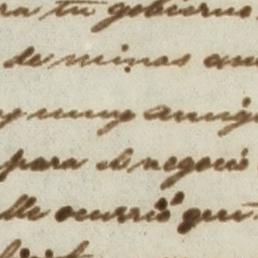 ra tu gobierno
de minas
y muy amigo
para el negocio
lle ocurrió que